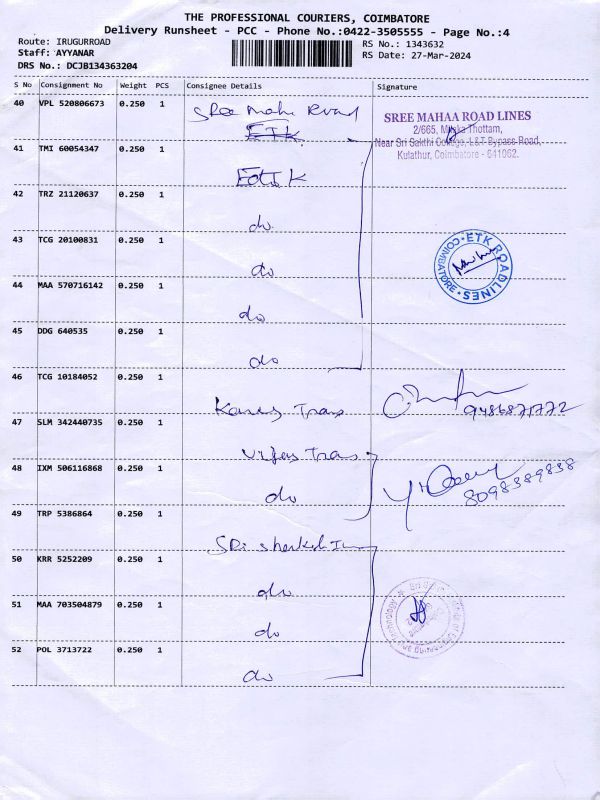 THE PROFESSIONAL COURIERS, COIMBATORE
Delivery Runsheet - PCC - Phone No.:0422-3505555 - Page No.:4
Route: IRUGURROAD
Staff: AYYANAR
DRS No.: DCJB134363204
RS No.: 1343632
RS Date: 27-Mar-2024
S No Consignment No Weight PCS Consignee Details Signature
40 VPL 520806673 0.250 1 Sree Maha Road
ETK
SREE MAHAA ROAD LINES
2/665, Thottam,
Near Sri Sakthi College, L&T Bypass Road,
Kulathur, Coimbatore - 641062.
41 TMI 60054347 0.250 1 ETK
42 TRZ 21120637 0.250 1 do
43 TCG 20100831 0.250 1 do
ETK ROADLINES
COIMBATORE
44 MAA 570716142 0.250 1 do
45 DDG 640535 0.250 1 do
46 TCG 10184052 0.250 1 Trans
9486871772
47 SLM 342440735 0.250 1 Trans
48 IXM 506116868 0.250 1 do
8098389838
49 TRP 5386864 0.250 1 Sri
50 KRR 5252209 0.250 1 do
51 MAA 703504879 0.250 1 do
52 POL 3713722 0.250 1 do